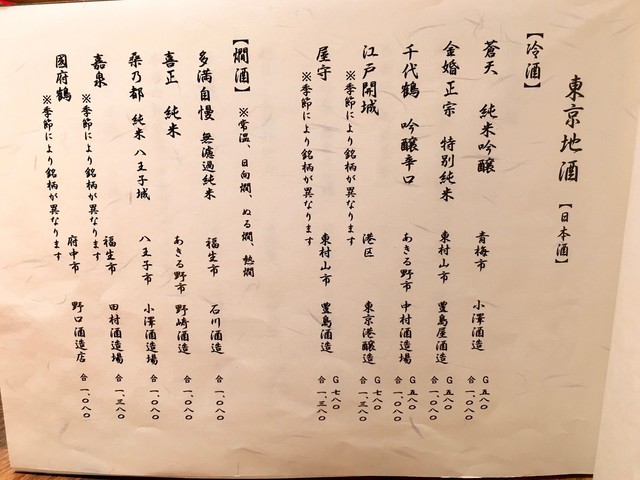 東京地酒 【日本酒】
【冷酒】
蒼天 純米吟醸 青梅市 小澤酒造 G 五八〇 合 一、〇八〇
金婚正宗 特別純米 東村山市 豊島屋酒造 G 五八〇 合 一、〇八〇
千代鶴 吟醸辛口 あきる野市 中村酒造場 G 五八〇 合 一、〇八〇
江戸開城 港区 東京港醸造 G 七八〇 合 一、三八〇
※季節により銘柄が異なります
屋守 東村山市 豊島酒造 G 七八〇 合 一、三八〇
※季節により銘柄が異なります
【燗酒】 ※常温、日向燗、ぬる燗、熱燗
多満自慢 無濾過純米 福生市 石川酒造 合 一、〇八〇
喜正 純米 あきる野市 野崎酒造 合 一、〇八〇
桑乃都 純米 八王子城 八王子市 小澤酒造場 合 一、〇八〇
嘉泉 福生市 田村酒造場 合 一、三八〇
※季節により銘柄が異なります
國府鶴 府中市 野口酒造店 合 一、〇八〇
※季節により銘柄が異なります